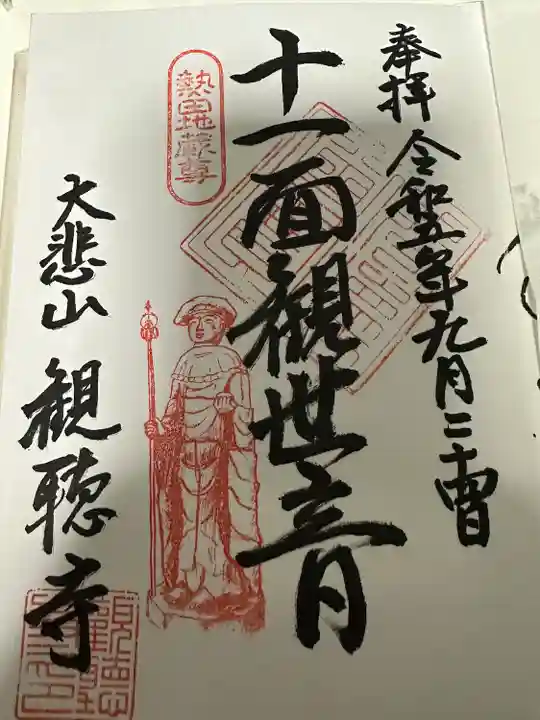 奉拝 令和五年九月三十曽日
十一面観世音
熱田地蔵尊
大悲山 観聴寺